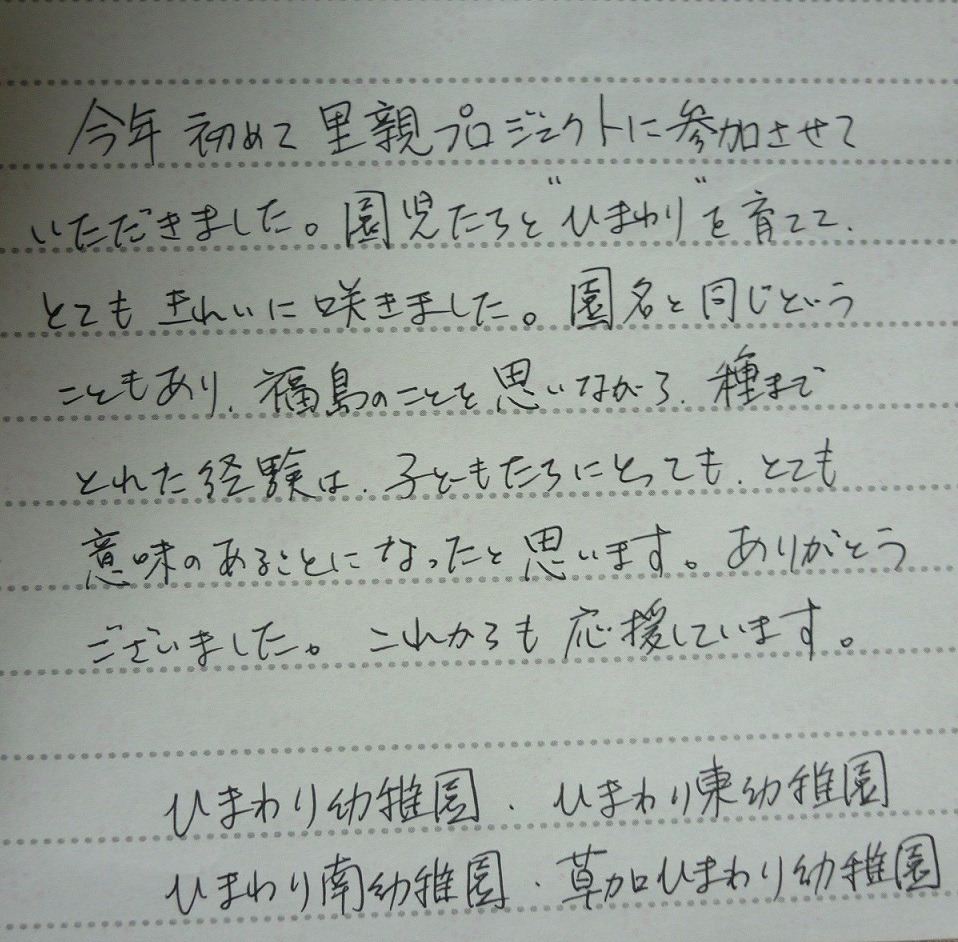 今年初めて里親プロジェクトに参加させて
いただきました。園児たちと"ひまわり"を育てて、
とてもきれいに咲きました。園名と同じという
こともあり、福島のことを思いながら、種まで
とれた経験は、子どもたちにとっても、とても
意味のあることになったと思います。ありがとう
ございました。これからも応援しています。
ひまわり幼稚園、ひまわり東幼稚園
ひまわり南幼稚園、草加ひまわり幼稚園